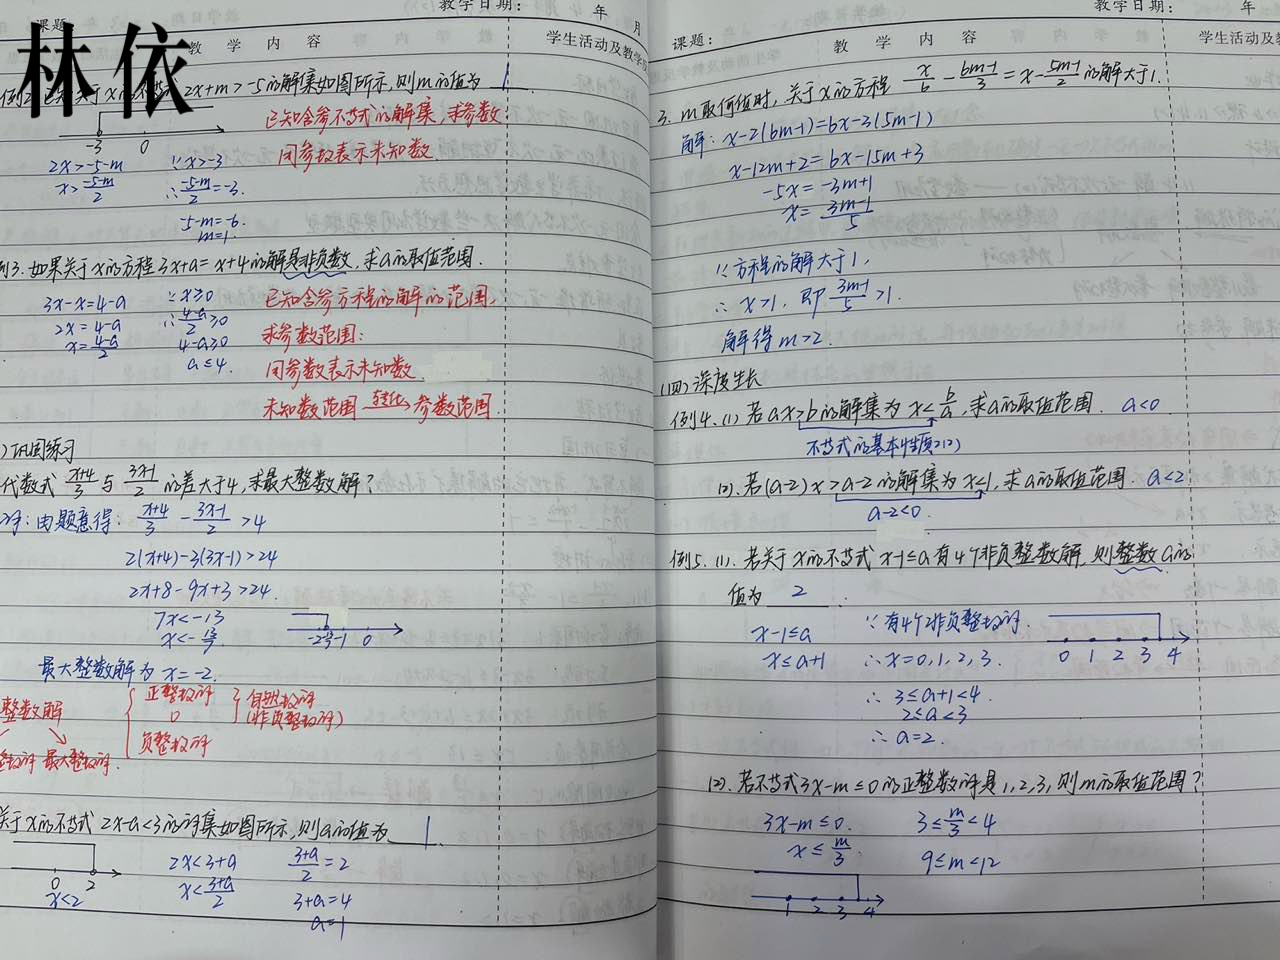 林依
课题:
教学日期: 年 月
教 学 内 容
学生活动及教学
2x+m>-5的解集如图所示,则m的值为 1
-3 0
已知含参不等式的解集,求参数:
用参数表示未知数
2x>-5-m ∵x>-3
x>(-5-m)/2 ∴(-5-m)/2=-3.
-5-m=-6.
m=1.
例3.如果关于x的方程3x+a=x+4的解是非负数,求a的取值范围.
3x-x=4-a ∵x≥0
2x=4-a ∴(4-a)/2≥0
x=(4-a)/2 4-a≥0
a≤4.
已知含参方程的解的范围,
求参数范围:
用参数表示未知数
未知数范围 转化→ 参数范围
巩固练习
代数式 (x+4)/3 与 (3x-1)/2 的差大于4,求最大整数解?
由题意得: (x+4)/3 - (3x-1)/2 >4
2(x+4)-3(3x-1)>24
2x+8-9x+3>24.
7x<-13
x<-13/7
-2 -1 0
最大整数解为x=-2.
整数解 { 正整数解 0 负整数解 } 自然数解 (非负整数解)
最大整数解.
关于x的不等式 2x-a<3的解集如图所示,则a的值为 1 .
0 2
x<2
2x<3+a (3+a)/2=2
x<(3+a)/2 3+a=4
a=1
课题:
教学日期: 年
教 学 内 容
学生活动及教
3. m取何值时,关于x的方程 x/6 - (6m-1)/3 = x - (5m-1)/2 的解大于1.
解: x-2(6m-1)=6x-3(5m-1)
x-12m+2=6x-15m+3
-5x=-3m+1
x=(3m-1)/5
∵方程的解大于1,
∴x>1,即 (3m-1)/5 >1.
解得m>2.
(四)深度生长
例4.(1)若ax>b的解集为x<b/a,求a的取值范围. a<0
不等式的基本性质
(2).若(a-2)x>a-2的解集为x<1,求a的取值范围. a<2
a-2<0.
例5.(1).若关于x的不等式 x-1≤a有4个非负整数解,则整数a的
值为 2 .
x-1≤a ∵有4个非负整数解.
x≤a+1 ∴x=0,1,2,3.
0 1 2 3 4
∴3≤a+1<4.
2≤a<3
∴a=2.
(2).若不等式3x-m≤0的正整数解是1,2,3,则m的取值范围?
3x-m≤0. 3≤m/3<4
x≤m/3. 9≤m<12
1 2 3 4